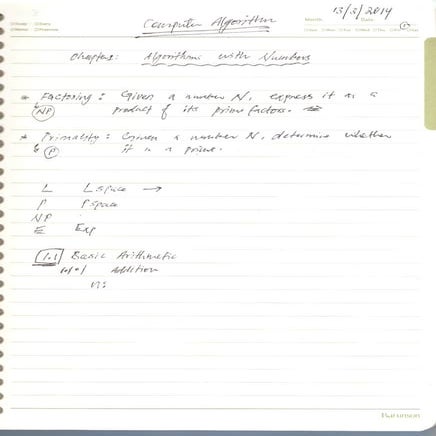 13/3/2014
Computer Algorithm
Chapter 1: Algorithms with Numbers
* Factoring: Given a number N, express it as a
NP product of its prime factors.
* Primality: Given a number N, determine whether
P it is a prime.
L Lspace →
P Pspace
NP
E Exp
1.1 Basic Arithmetic
1.1.1 Addition
n: